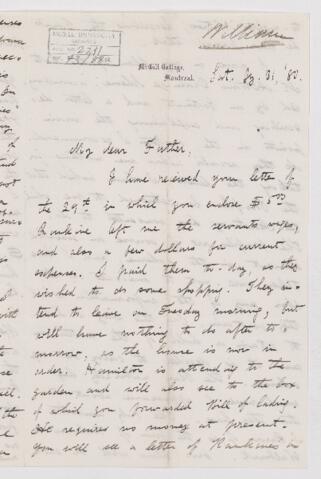 William
McGILL UNIVERSITY
ACC. NO. 2211
REF. 43/
McGill College,
Montreal,
Sat. 31, '80.
My dear Father,
I have received your letter of
the 29th in which you enclose $5.00
Rankine left me the servants wages,
and also a few dollars for current
expenses. I paid them to-day, as they
wished to do some shopping. They in-
tend to leave on Tuesday morning, but
will have nothing to do after to-
morrow, as the house is now in
order. Hamilton is attending to the
garden and will also see to the box
of which you forwarded Bill of Lading.
He requires no money at present.
You will see a letter of Rankine's in